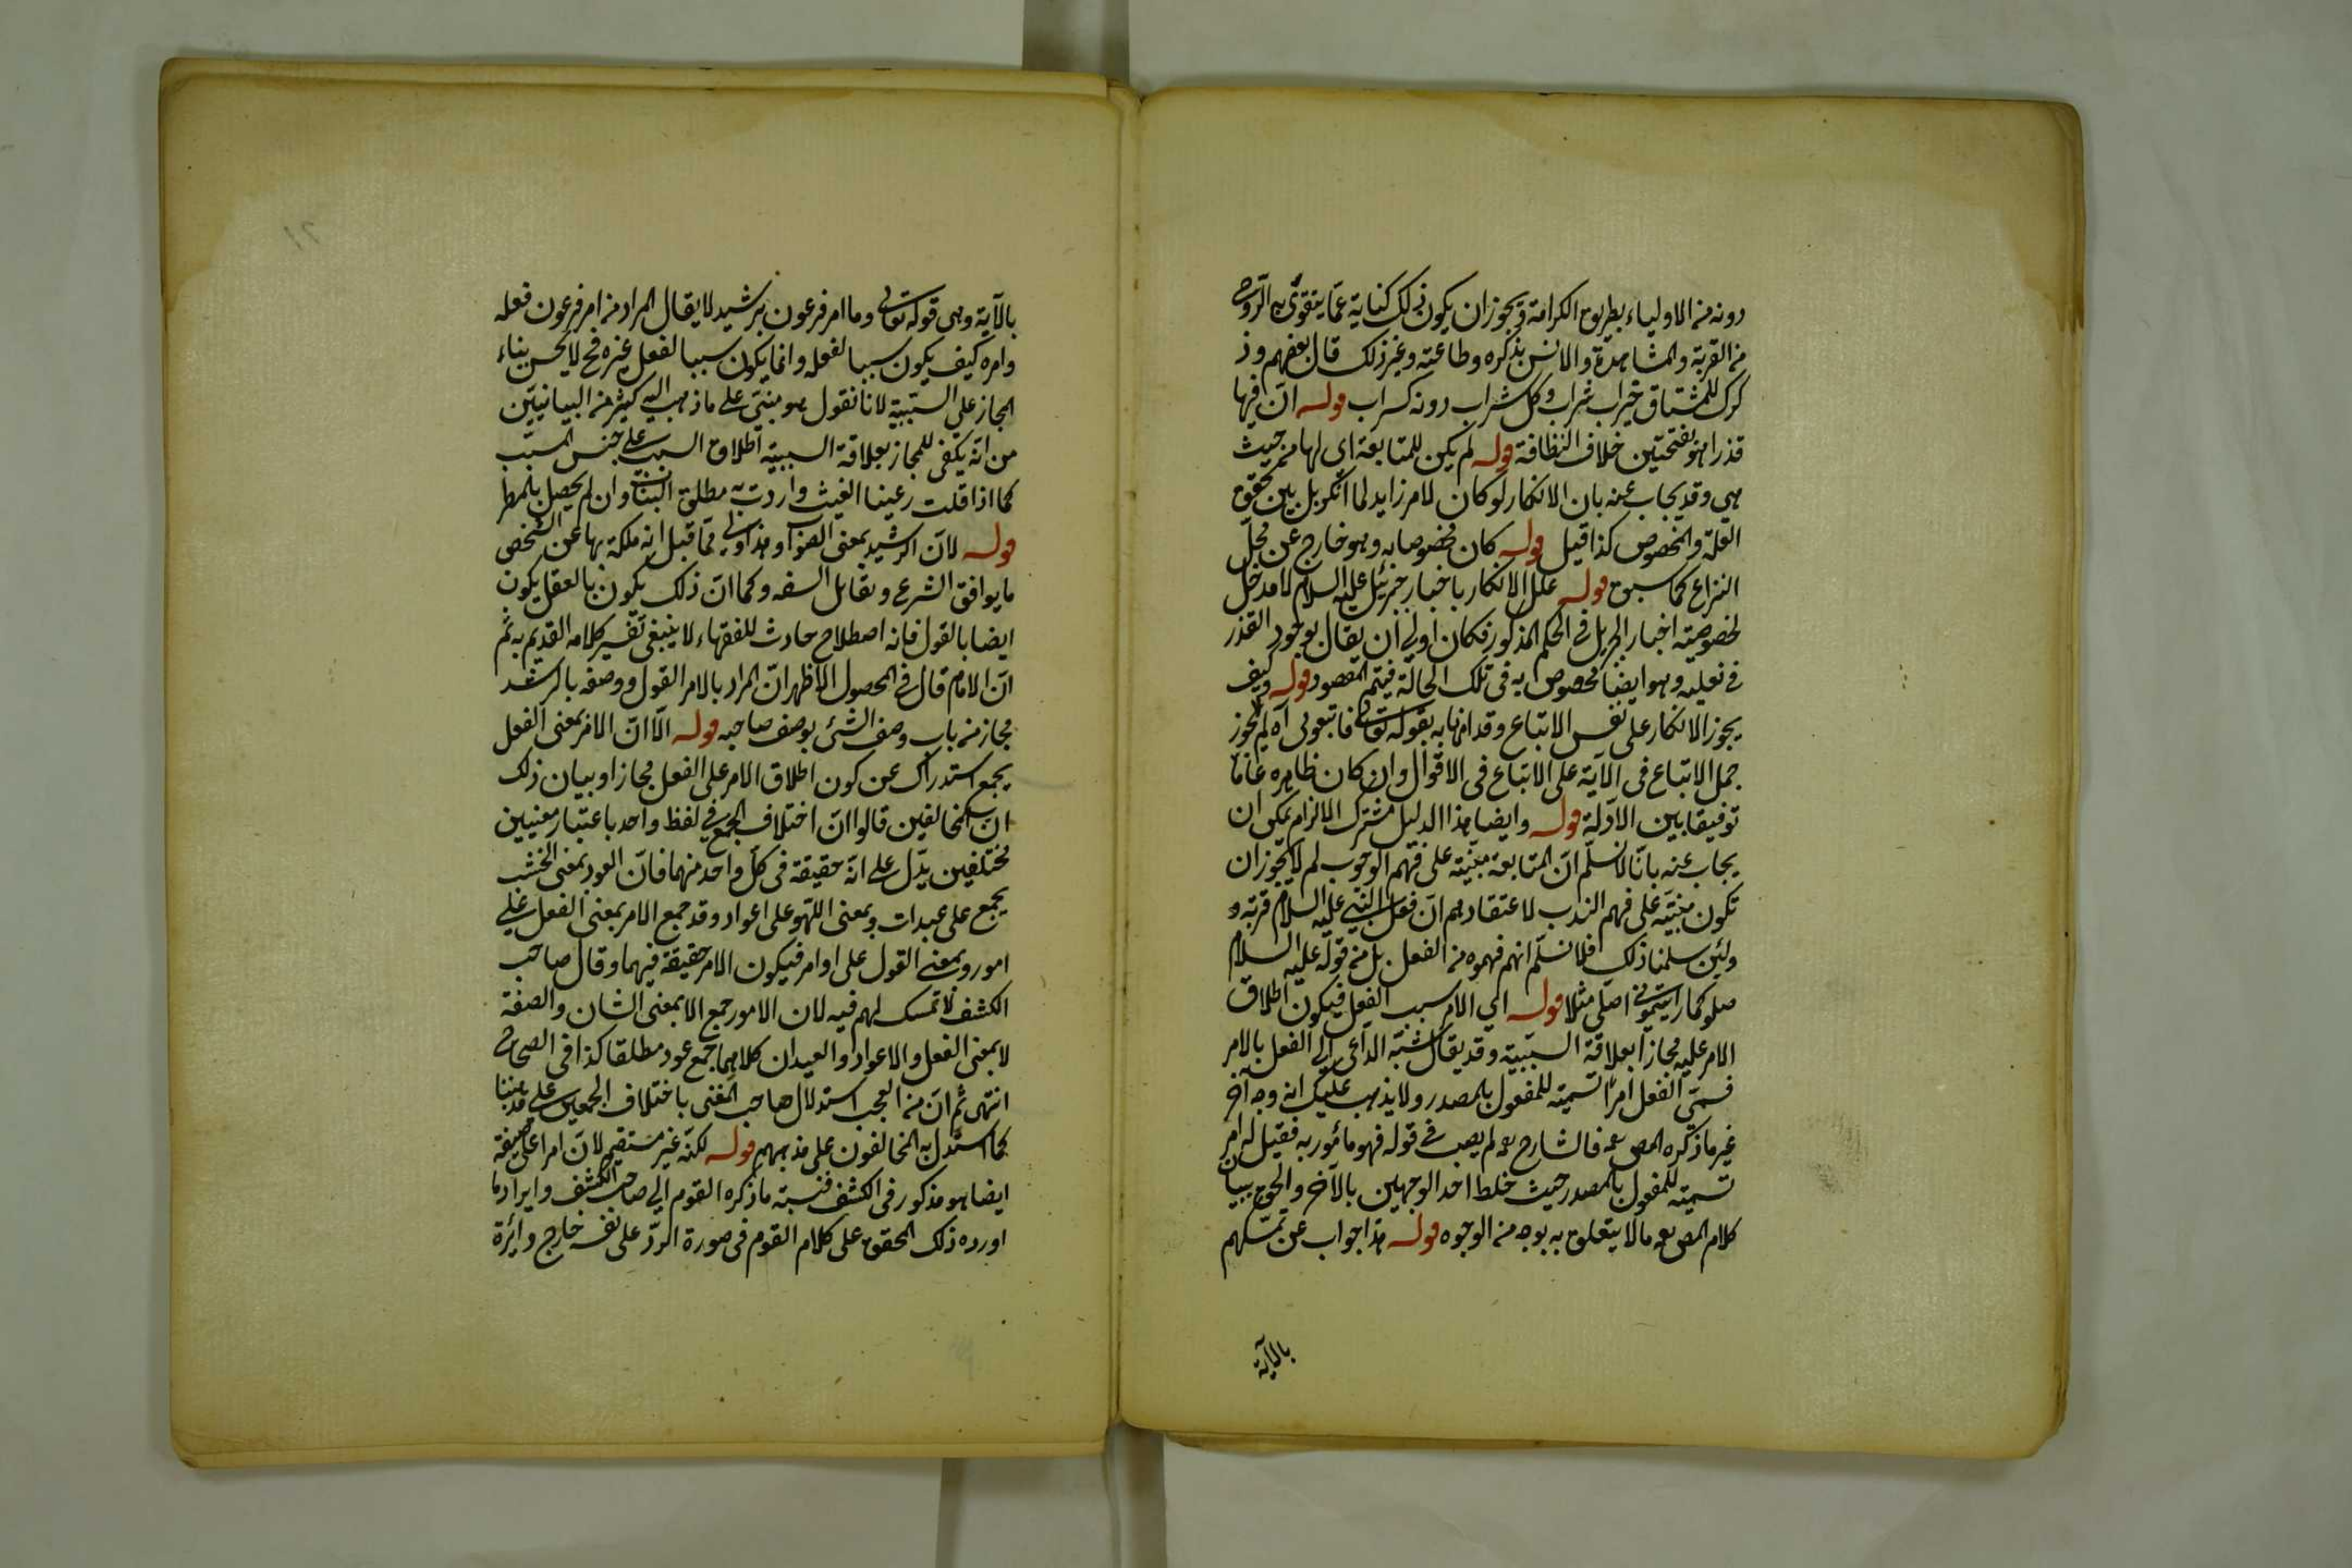 دونه من الاولياء بطريق الكرامة ويجوز ان يكون ذلك كناية عما يتقوى به الروح
من القربة والمشاهدة والانس بذكره وطاعته وغير ذلك قال بعضهم وذ
كرك للمشتاق خير شراب وكل شراب دونه كسراب قوله ان فيها
قذرا هو بفتحتين خلاف النظافة قوله لم يكن للمتابعة اى لها من حيث
هى وقد يجاب عنه بان الانكار لو كان لامر زايد لما انكر بل بين تحقق
العلة والخصوص كذا قيل قوله كان مخصوصا به وهو خارج عن محل
النزاع كما سبق قوله علل الانكار باخبار جبرئيل عليه السلام لا مدخل
لخصوصية اخبار جبريل فى الحكم المذكور فكان اولى ان يقال بوجود القذر
فى نعليه وهو ايضا مخصوص به فى تلك الحالة فيتم المقصود قوله وكيف
يجوز الانكار على نفس الاتباع وقد امرنا به بقوله تعالى فاتبعونى آه لم لا يجوز
حمل الاتباع فى الآية على الاتباع فى الاقوال وان كان ظاهره عاما
توفيقا بين الادلة قوله وايضا هذا الدليل مشترك الالزام يمكن ان
يجاب عنه بانا لا نسلم ان المتابعة مبنية على فهم الوجوب لم لا يجوز ان
تكون مبنية على فهم الندب لاعتقادهم ان فعل النبى عليه السلام قربة و
ولئن سلمنا ذلك فلا نسلم انهم فهموه من الفعل بل من قوله عليه السلام
صلو كما رايتمونى اصلى مثلا قوله اى الامر سبب الفعل فيكون اطلاق
الامر عليه مجازا بعلاقة السببية وقد يقال شبه الداعى الى الفعل بالامر
فسمى الفعل امرا تسمية للمفعول بالمصدر ولا يذهب عليك انه وجه آخر
غير ما ذكره المص رحمه فالشارح رحمه لم يصب فى قوله فهو مأمور به فقيل له امر
تسمية للمفعول بالمصدر حيث خلط احد الوجهين بالآخر والحق ببيان
كلام المص رحمه ما لا يتعلق به بوجه من الوجوه قوله هذا جواب عن تمسكهم
بالآية
بالآية وهى قوله تعالى وما امر فرعون برشيد لا يقال المراد من امر فرعون فعله
وامره كيف يكون سببا لفعله وانما يكون سببا لفعل غيره فح لا يحسن بناء
المجاز على السببية لانا نقول هو مبنى على ما ذهب اليه كثير من البيانيين
من انه يكفى للمجاز بعلاقة السببية اطلاق السبب على جنس المسبب
كما اذا قلت رعينا الغيث واردت به مطلق النبات وان لم يحصل بالمطر
قوله لان الرشيد بمعنى الصواب وهذا اولى مما قيل انه ملكة بها عن الشخص
ما يوافق الشرع ويقابل السفه وكما ان ذلك يكون بالعقل يكون
ايضا بالقول فانه اصطلاح حادث للفقهاء لا ينبغى تفسير كلامه القديم به ثم
ان الامام قال فى المحصول الاظهر ان المراد بالامر القول ووصفه بالرشد
مجاز من باب وصف الشئ بوصف صاحبه قوله الا ان الامر بمعنى الفعل
يجمع استدراك عن كون اطلاق الامر على الفعل مجازا وبيان ذلك
ان المخالفين قالوا ان اختلاف الجمع فى لفظ واحد باعتبار معنيين
مختلفين يدل على انه حقيقة فى كل واحد منهما فان العود بمعنى الخشب
يجمع على عيدان وبمعنى اللهو على اعواد وقد جمع الامر بمعنى الفعل على
امور وبمعنى القول على اوامر فيكون الامر حقيقة فيهما وقال صاحب
الكشف لا تمسك لهم فيه لان الامور جمع الامر بمعنى الشان والصفة
لا بمعنى الفعل والاعواد والعيدان كلاهما جمع عود مطلقا كذا فى الصحاح
انتهى ثم ان من العجب استدلال صاحب المغنى باختلاف الجمعين على مذهبنا
كما استدل به المخالفون على مذهبهم قوله لكنه غير مستقيم لان امرا على صيغة
ايضا هو مذكور فى الكشف فنسبة ما ذكره القوم الى صاحب الكشف وايراد ما
اورده ذلك المحقق على كلام القوم فى صورة الرد على نفسه خارج دائرة